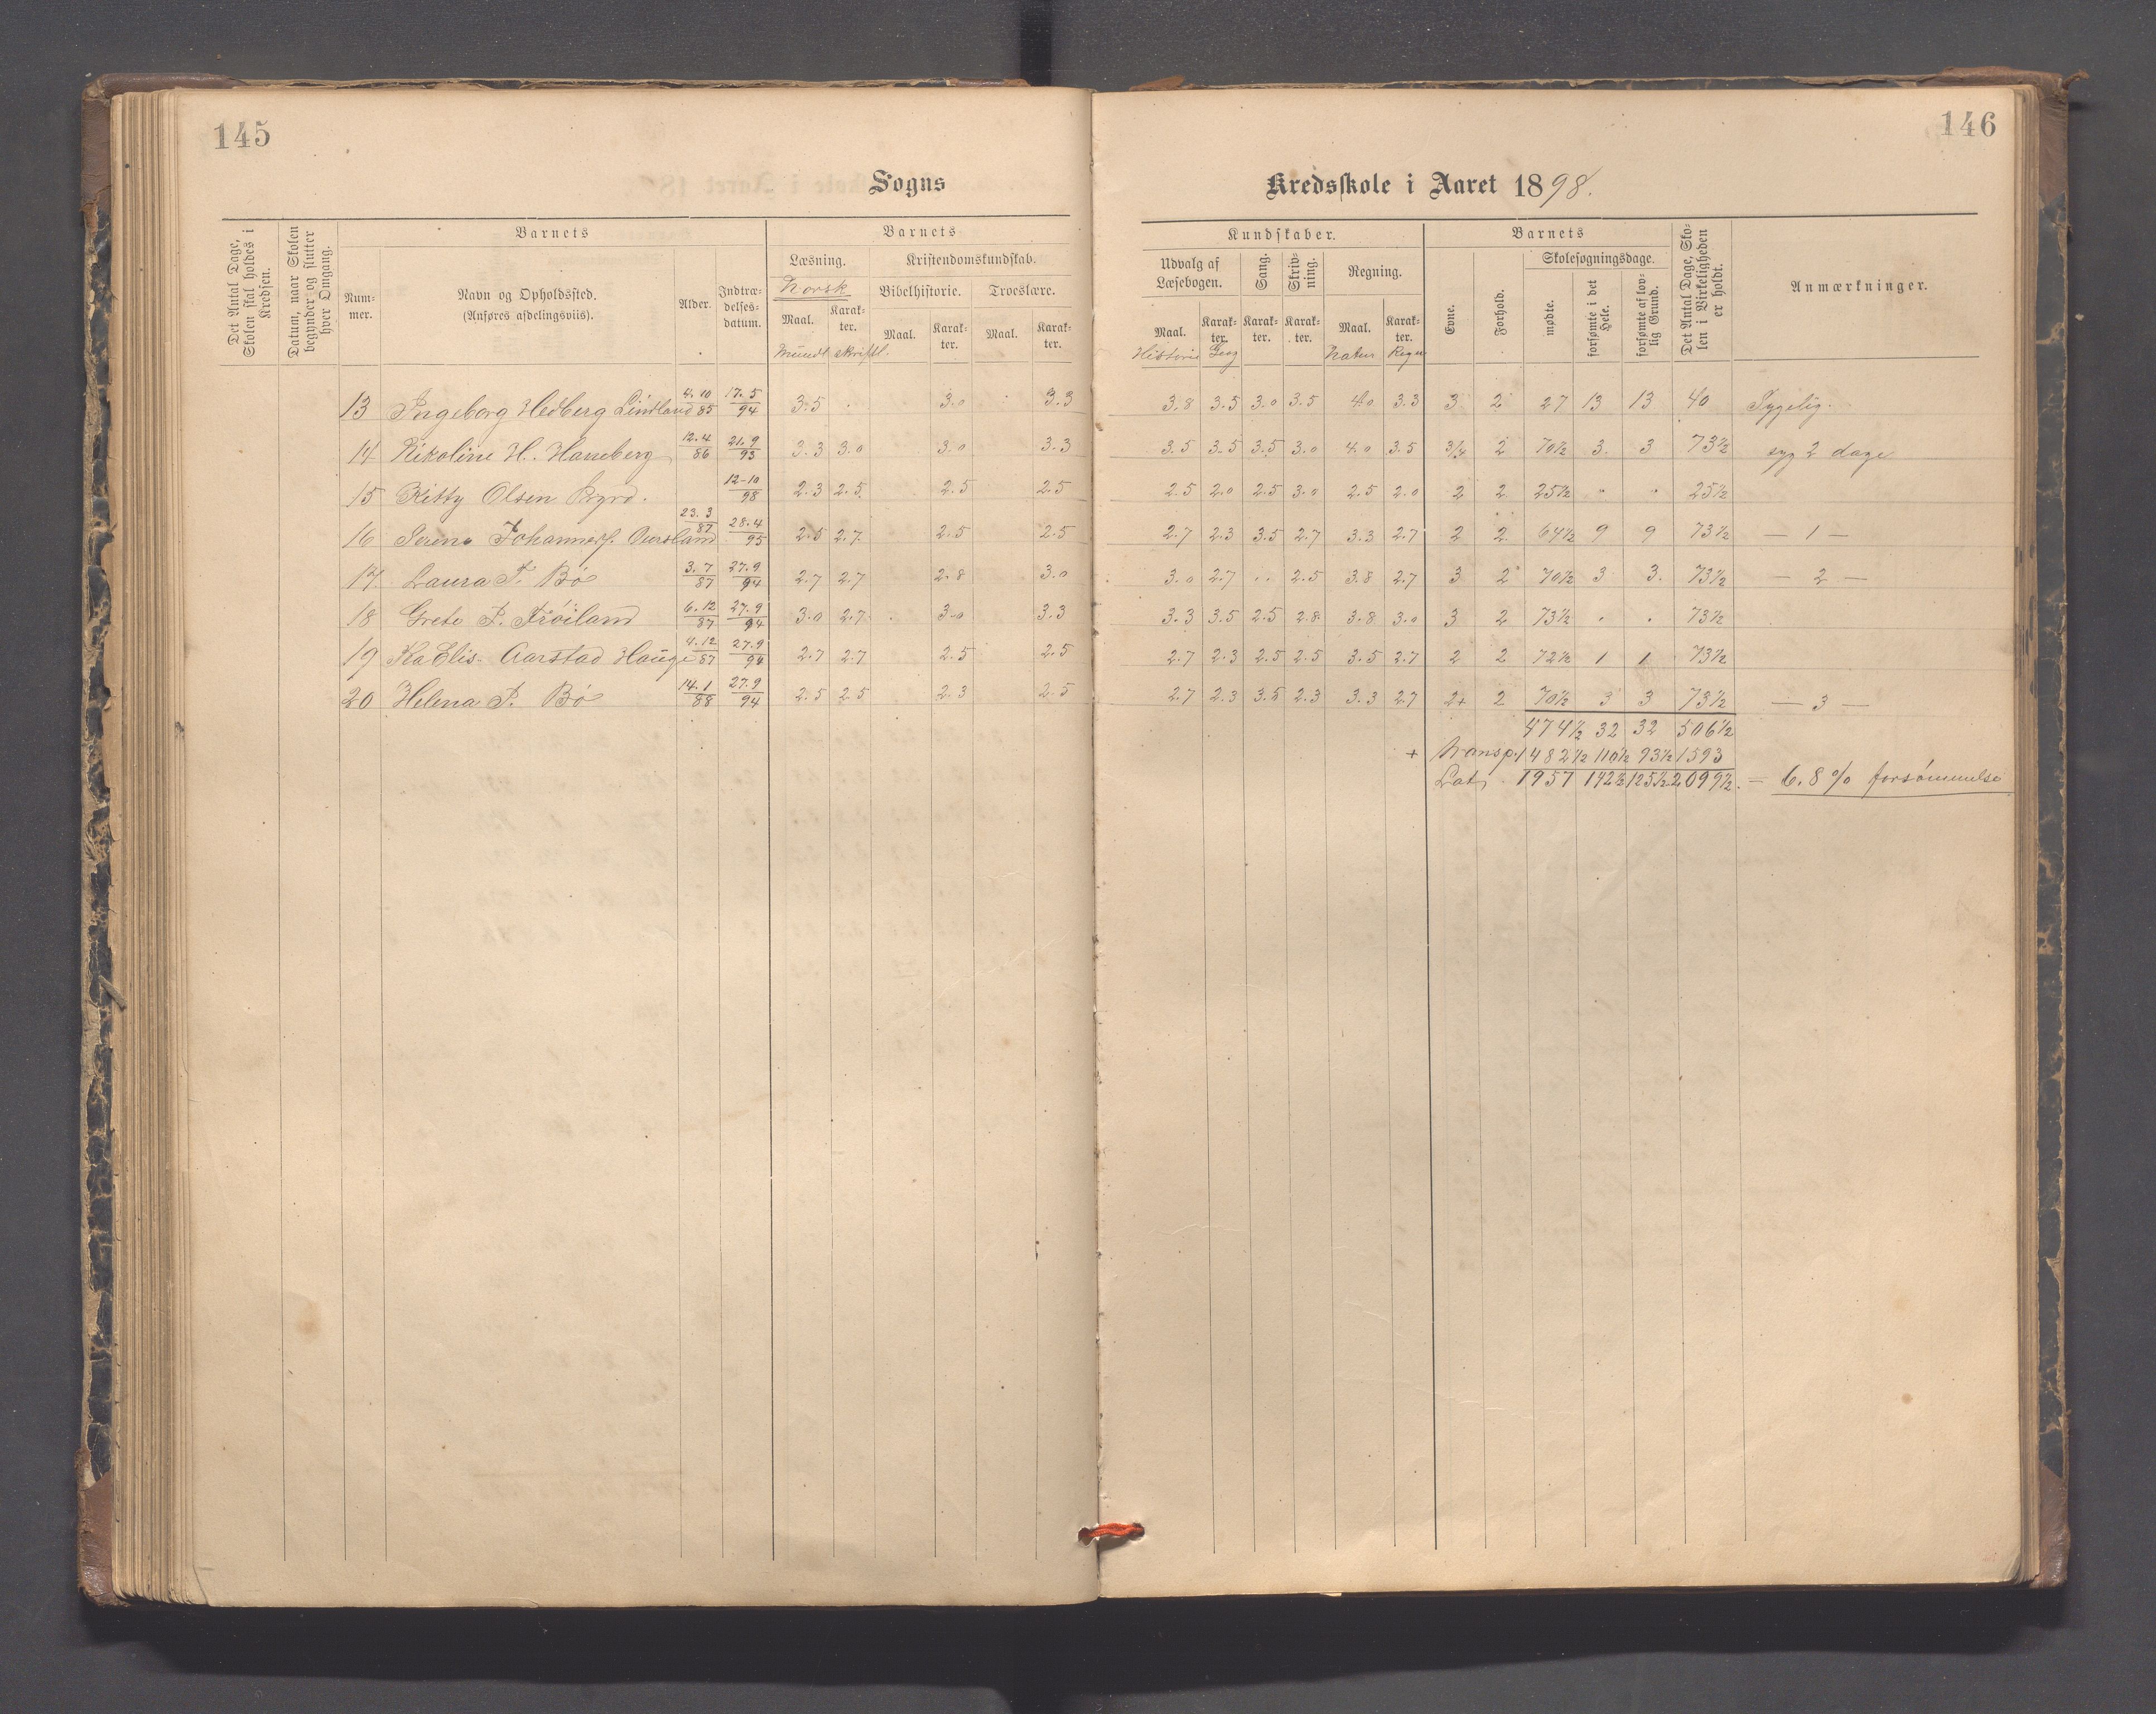 145
Sogns
Det Antal Dage, Skolen skal holdes i Kredsen.
Datum, naar Skolen begynder og slutter hver Omgang.
Barnets
Num-
mer.
Navn og Opholdssted.
(Anføres afdelingsviis).
Alder.
Indtræ-
delses-
datum.
Barnets
Læsning.
Norsk
Maal.
Karak-
ter.
Mundl. skriftl.
Kristendomskundskab.
Bibelhistorie.
Troeslære.
Maal.
Karak-
ter.
Maal.
Karak-
ter.
13 Ingeborg Hedberg Lindland 4.10/85 17.5/94 3.5 3.0 3.3
14 Nikoline H. Haneberg 12.4/86 21.9/93 3.3 3.0 3.0 3.3
15 Kitty Olsen 12-10/98 2.3 2.5 2.5 2.5
16 Serena Johannesf. 23.3/87 28.4/95 2.5 2.7 2.5 2.5
17 Laura T. Bö 3.7/87 27.9/94 2.7 2.7 2.8 3.0
18 Grete P. Fröiland 6.12/87 27.9/94 3.0 2.7 3.0 3.3
19 Ka Elis. Aarstad Hauge 4.12/87 27.9/94 2.7 2.7 2.5 2.5
20 Helena P. Bö 14.1/88 27.9/94 2.5 2.5 2.3 2.5
146
Kredsskole i Aaret 1898.
Kundskaber.
Udvalg af
Læsebogen.
Maal.
Karak-
ter.
Historie Geog
Sang.
Karak-
ter.
Skriv-
ning.
Karak-
ter.
Regning.
Maal.
Karak-
ter.
Natur Regn
Barnets
Evne.
Forhold.
Skolesøgningsdage.
mødte.
forsømte i det Hele.
forsømte af lov-
lig Grund.
Det Antal Dage, Sko-
len i Virkeligheden
er holdt.
Anmærkninger.
3.8 3.5 3.0 3.5 4.0 3.3 3 2 27 13 13 40 Sygelig.
3.5 3.5 3.5 3.0 4.0 3.5 3/4 2 70½ 3 3 73½ syg 2 dage
2.5 2.0 2.5 3.0 2.5 2.0 2 2 25½ " " 25½
2.7 2.3 3.5 2.7 3.3 2.7 2 2 64½ 9 9 73½ — 1 —
3.0 2.7 .. 2.5 3.8 2.7 3 2 70½ 3 3. 73½ — 2 —
3.3 3.5 2.5 2.8 3.8 3.0 3 2 73½ . . 73½
2.7 2.3 2.5 2.5 3.5 2.7 2 2 72½ 1 1 73½
2.7 2.3 3.5 2.3 3.3 2.7 2+ 2 70½ 3 3 73½ — 3 —
474½ 32 32 506½
+ Transp. 1482½ 110½ 93½ 1593
Lat. 1957 142½ 125½ 2099½. — 6.8 % forsömmelse